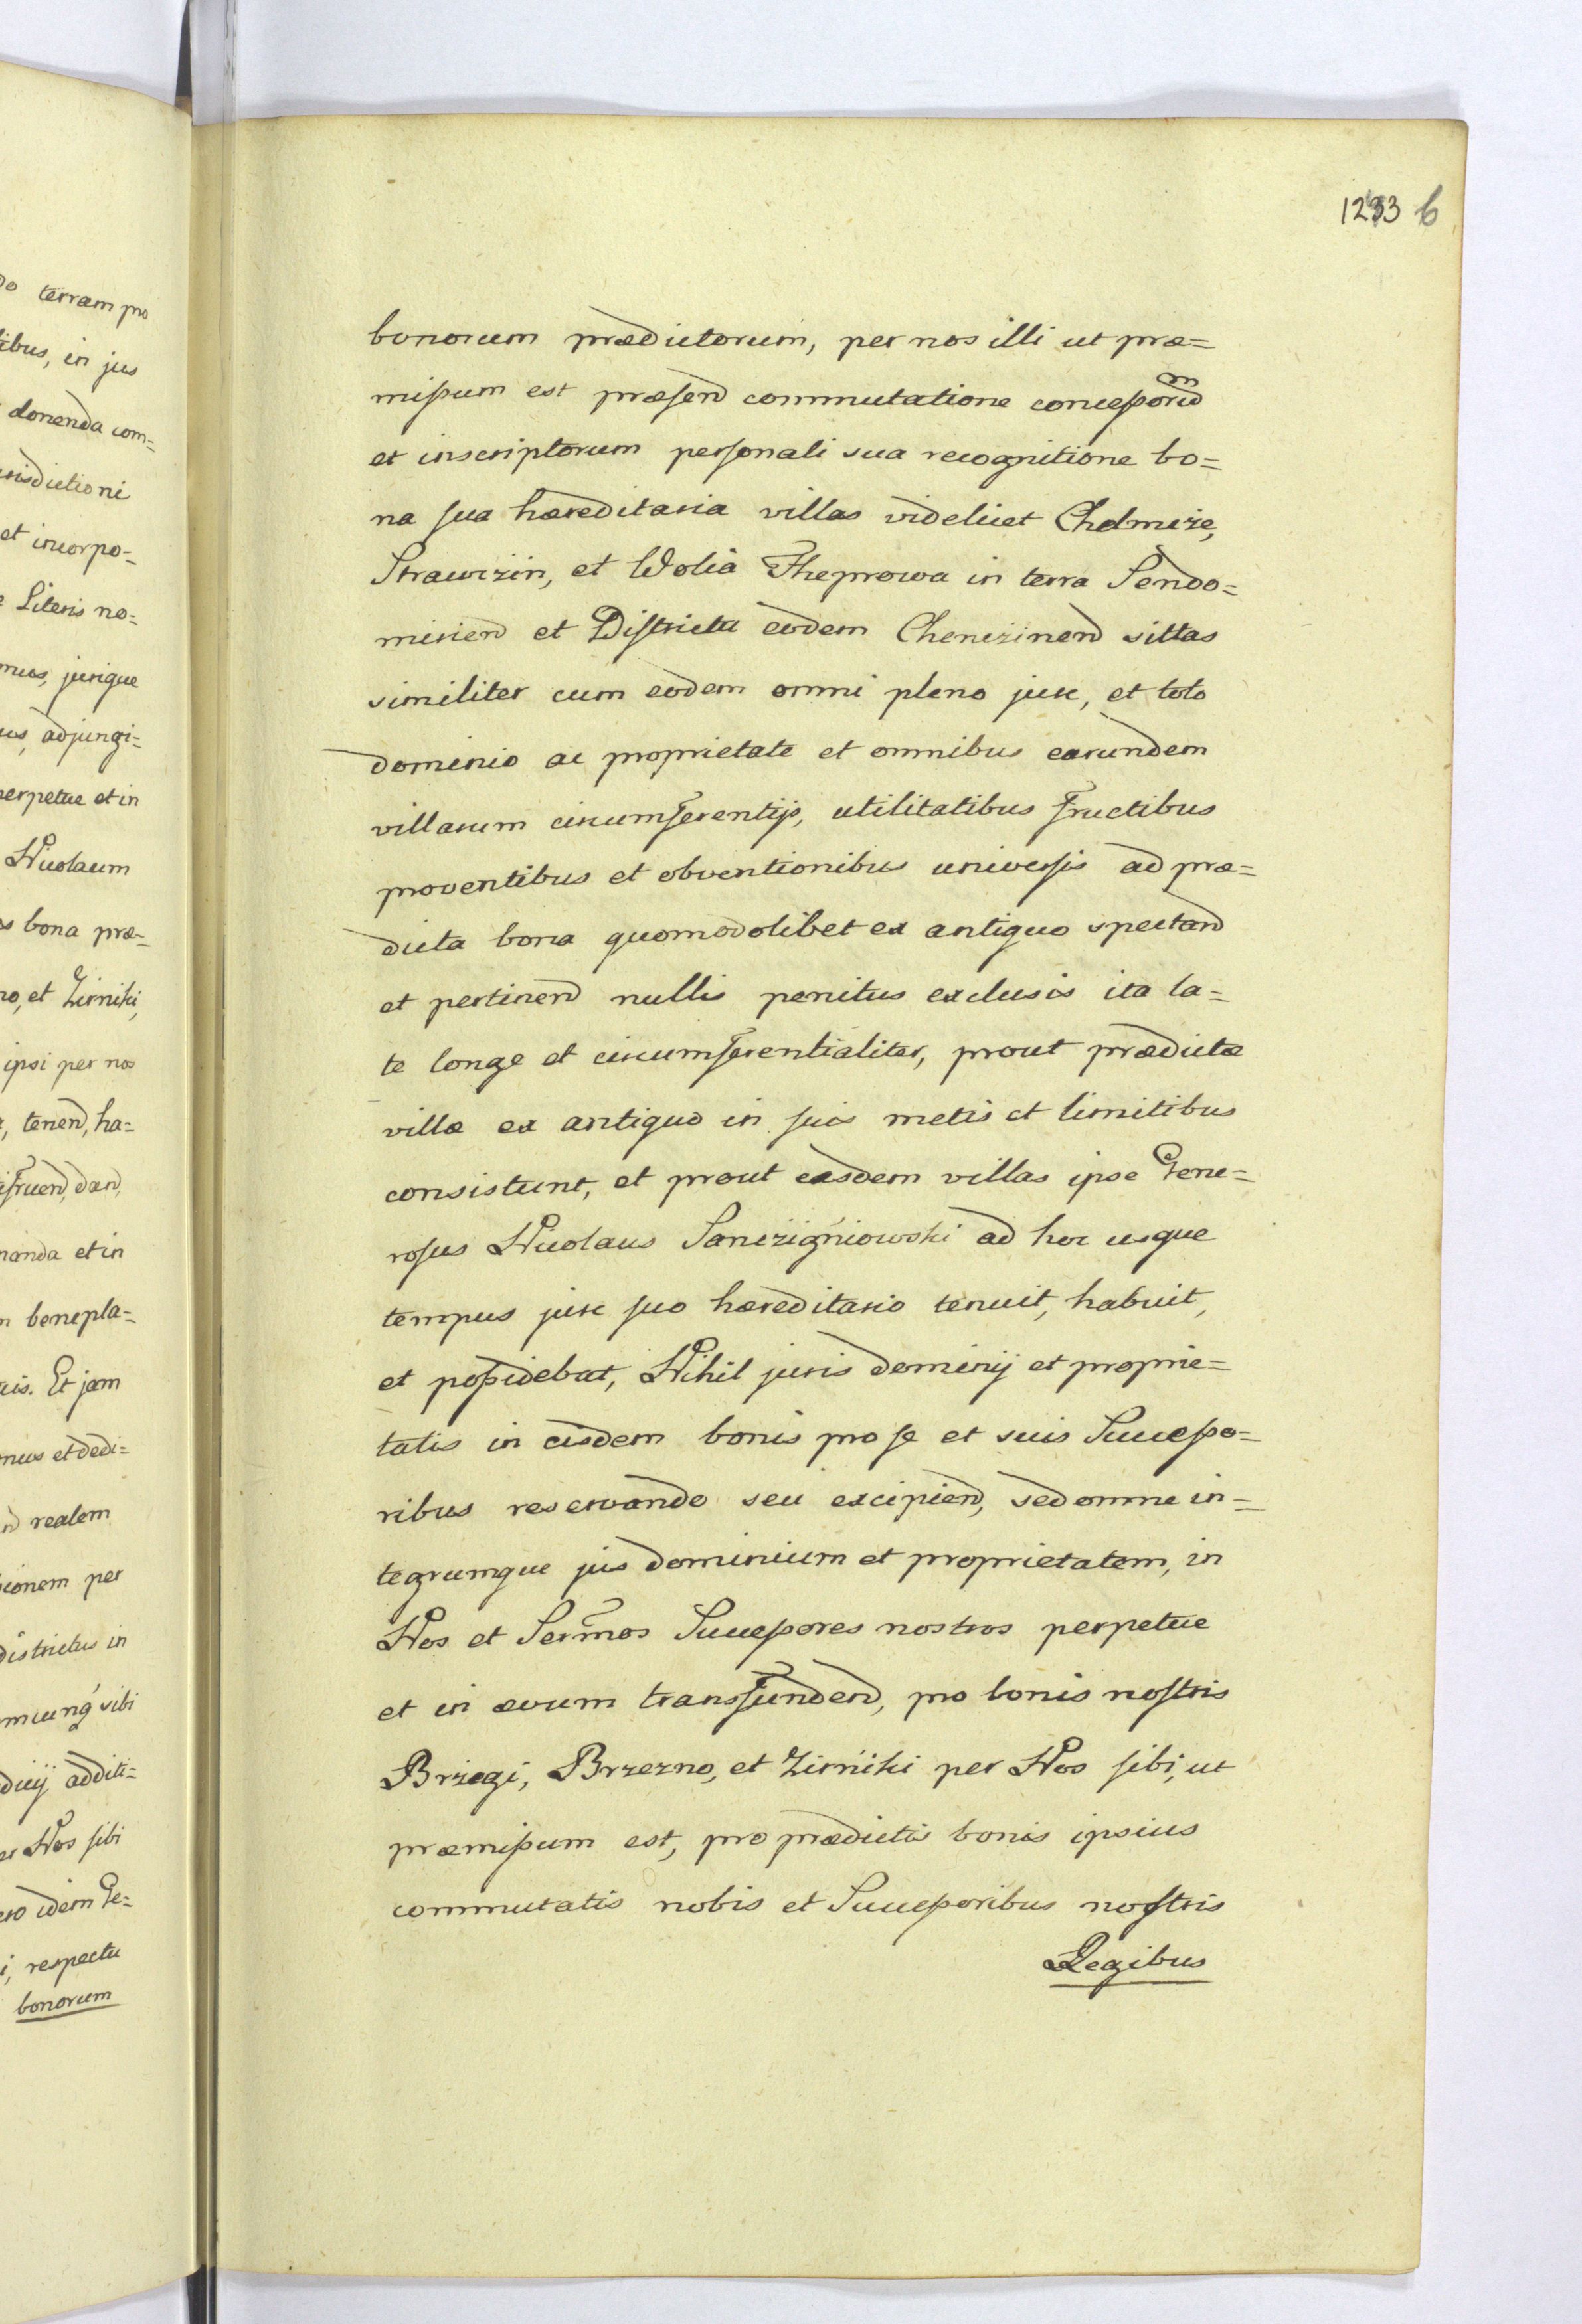 do terram pro
ibus, in jus
donenda com=
risdictioni
et incorpo=
Literis no=
mus, jurique
us, adjungi=
perpetue et in
Nicolaum
s bona præ=
no, et Zirniki,
ipsi per nos
, tenend, ha=
fruend, dand,
nanda et in
m benepla=
uis. Et jam
mus et dedi=
nd realem
sionem per
districtus in
mcunq sibi
duij additi=
er Nos sibi
ero idem Ge=
i, respectu
bonorum
1233 6
bonorum prædictorum, per nos illi ut præ=
missum est præsend commutatione concessorum
et inscriptorum personali sua recognitione bo=
na sua hæreditaria villas videlicet Chelmcze,
Strawczin, et Wolia Theprowa in terra Sendo=
miriend et Districtu eodem Chenczinend sittas
similiter cum eodem omni pleno jure, et toto
dominio ac proprietate et omnibus earundem
villarum circumferentijs, utilitatibus fructibus
proventibus et obventionibus universis ad præ=
dicta bona quomodolibet ex antiquo spectand
et pertinend nullis penitus exclusis ita la=
te longe et circumferentialiter, prout prædictæ
villæ ex antiquo in suis metis et limitibus
consistunt, et prout easdem villas ipse Gene=
rosus Nicolaus Sanczigniowski ad hoc usque
tempus jure suo hæreditario tenuit, habuit,
et possidebat, Nihil juris dominij et proprie=
tatis in eisdem bonis pro se et suis Successo=
ribus reservando seu excipiend, sed omne in=
tegrumque jus dominium et proprietatem, in
Nos et Sermos Successores nostros perpetue
et in ævum transfundend, pro bonis nostris
Brzegi, Brzezno, et Zirniki per Nos sibi, ut
præmissum est, pro prædictis bonis ipsius
commutatis nobis et Successoribus nostris
Regibus